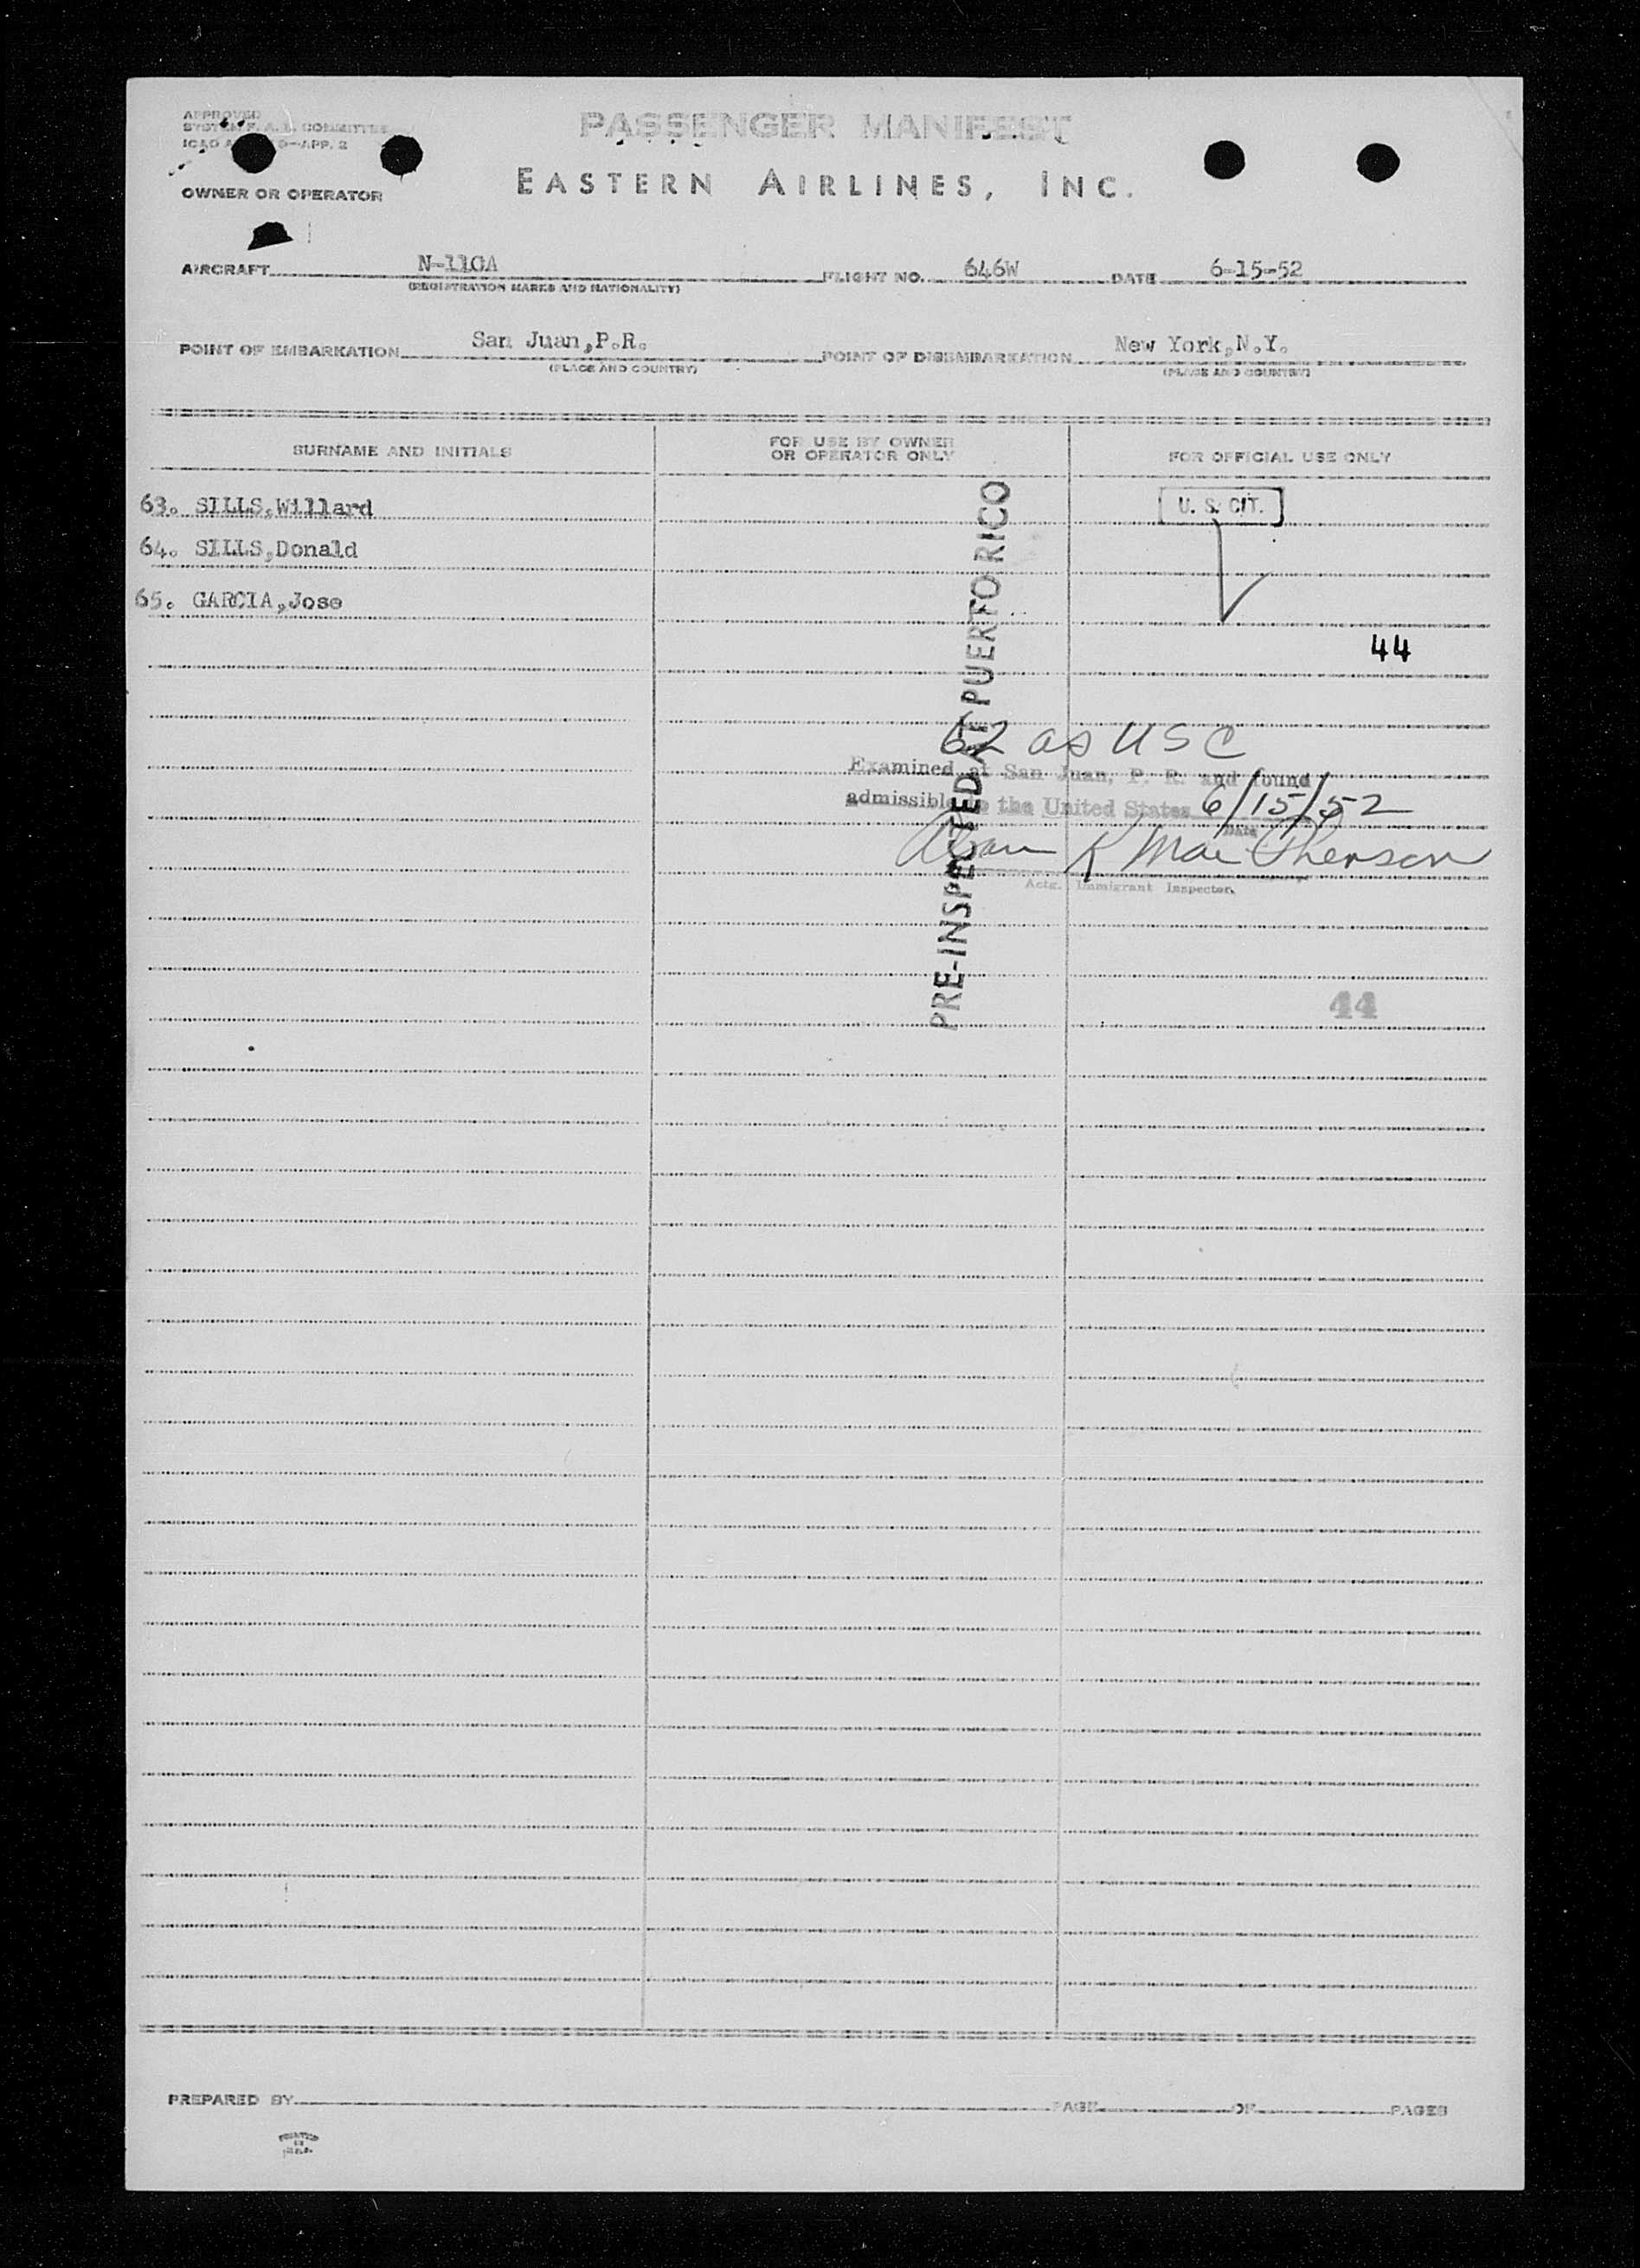 APPROVED
SYSTEM F. A. L. COMMITTEE
ICAO 9—APP. 2
PASSENGER MANIFEST
OWNER OR OPERATOR EASTERN AIRLINES, INC.
AIRCRAFT N-110A FLIGHT NO. 646W DATE 6-15-52
(REGISTRATION MARKS AND NATIONALITY)
POINT OF EMBARKATION San Juan,P.R. POINT OF DISEMBARKATION New York,N.Y.
(PLACE AND COUNTRY) (PLACE AND COUNTRY)
SURNAME AND INITIALS
FOR USE BY OWNER
OR OPERATOR ONLY
FOR OFFICIAL USE ONLY
63. SILLS,Willard U. S. CIT.
64. SILLS,Donald
65. GARCIA,Jose
44
PRE-INSPECTED AT PUERTO RICO
62 as USC
Examined at San Juan, P. R. and found
admissible to the United States 6/15/52
Date
K MacPherson
Actg. Immigrant Inspector.
44
PREPARED BY PAGE OF PAGES
PRINTED
IN
U.S.A.